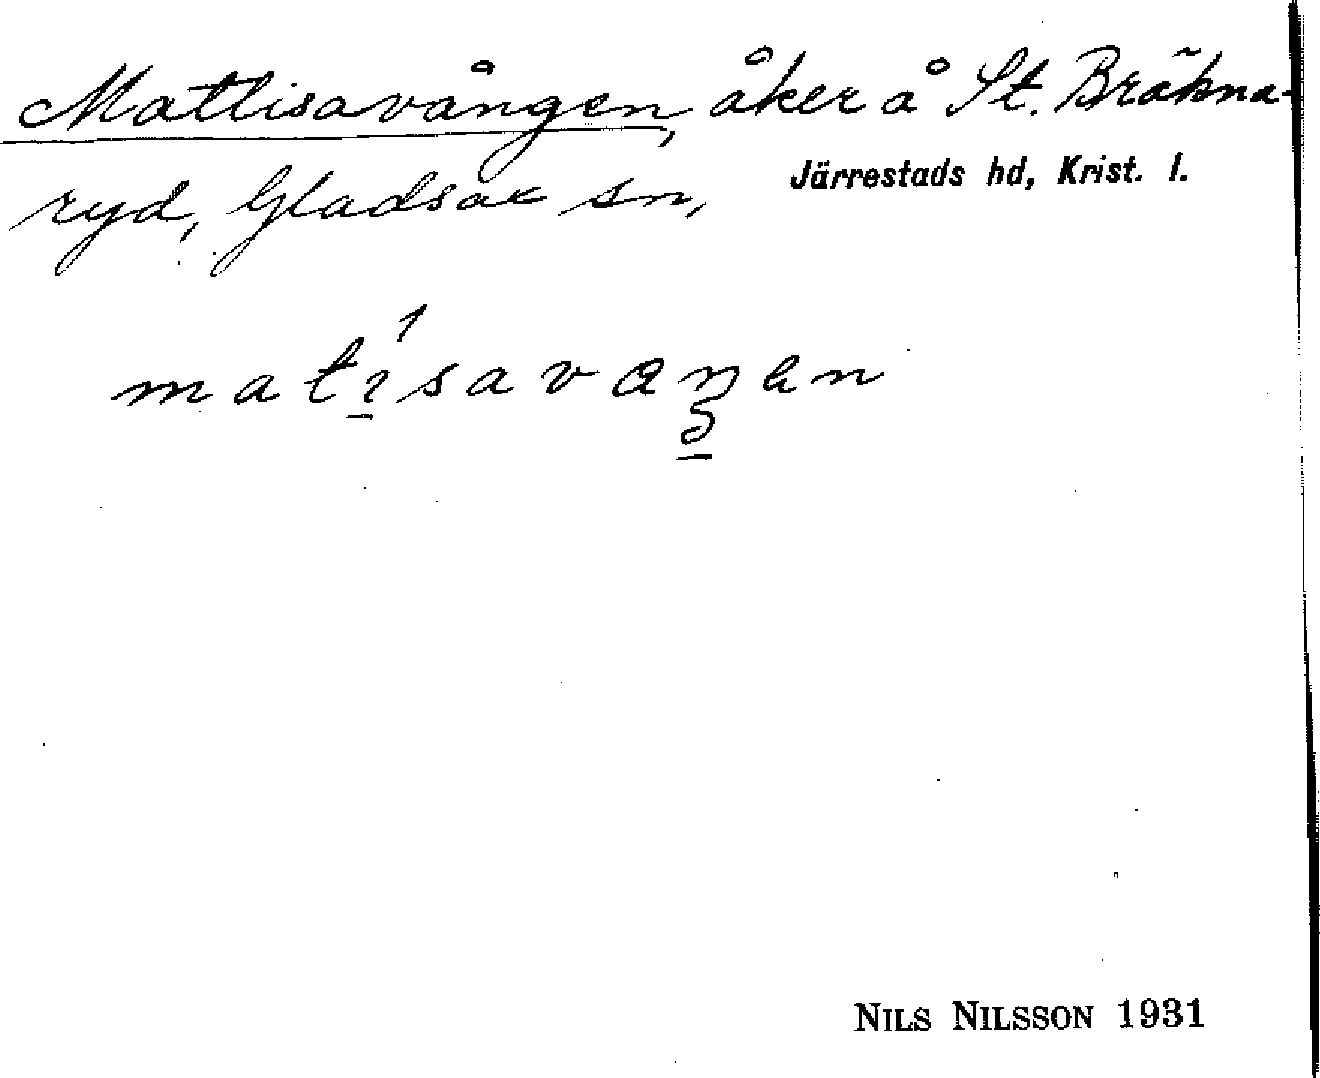 Mattisavången, åker å St. Bräkna-
ryd, Gladsax sn, Järrestads hd, Krist. l.
NILS NILSSON 1931